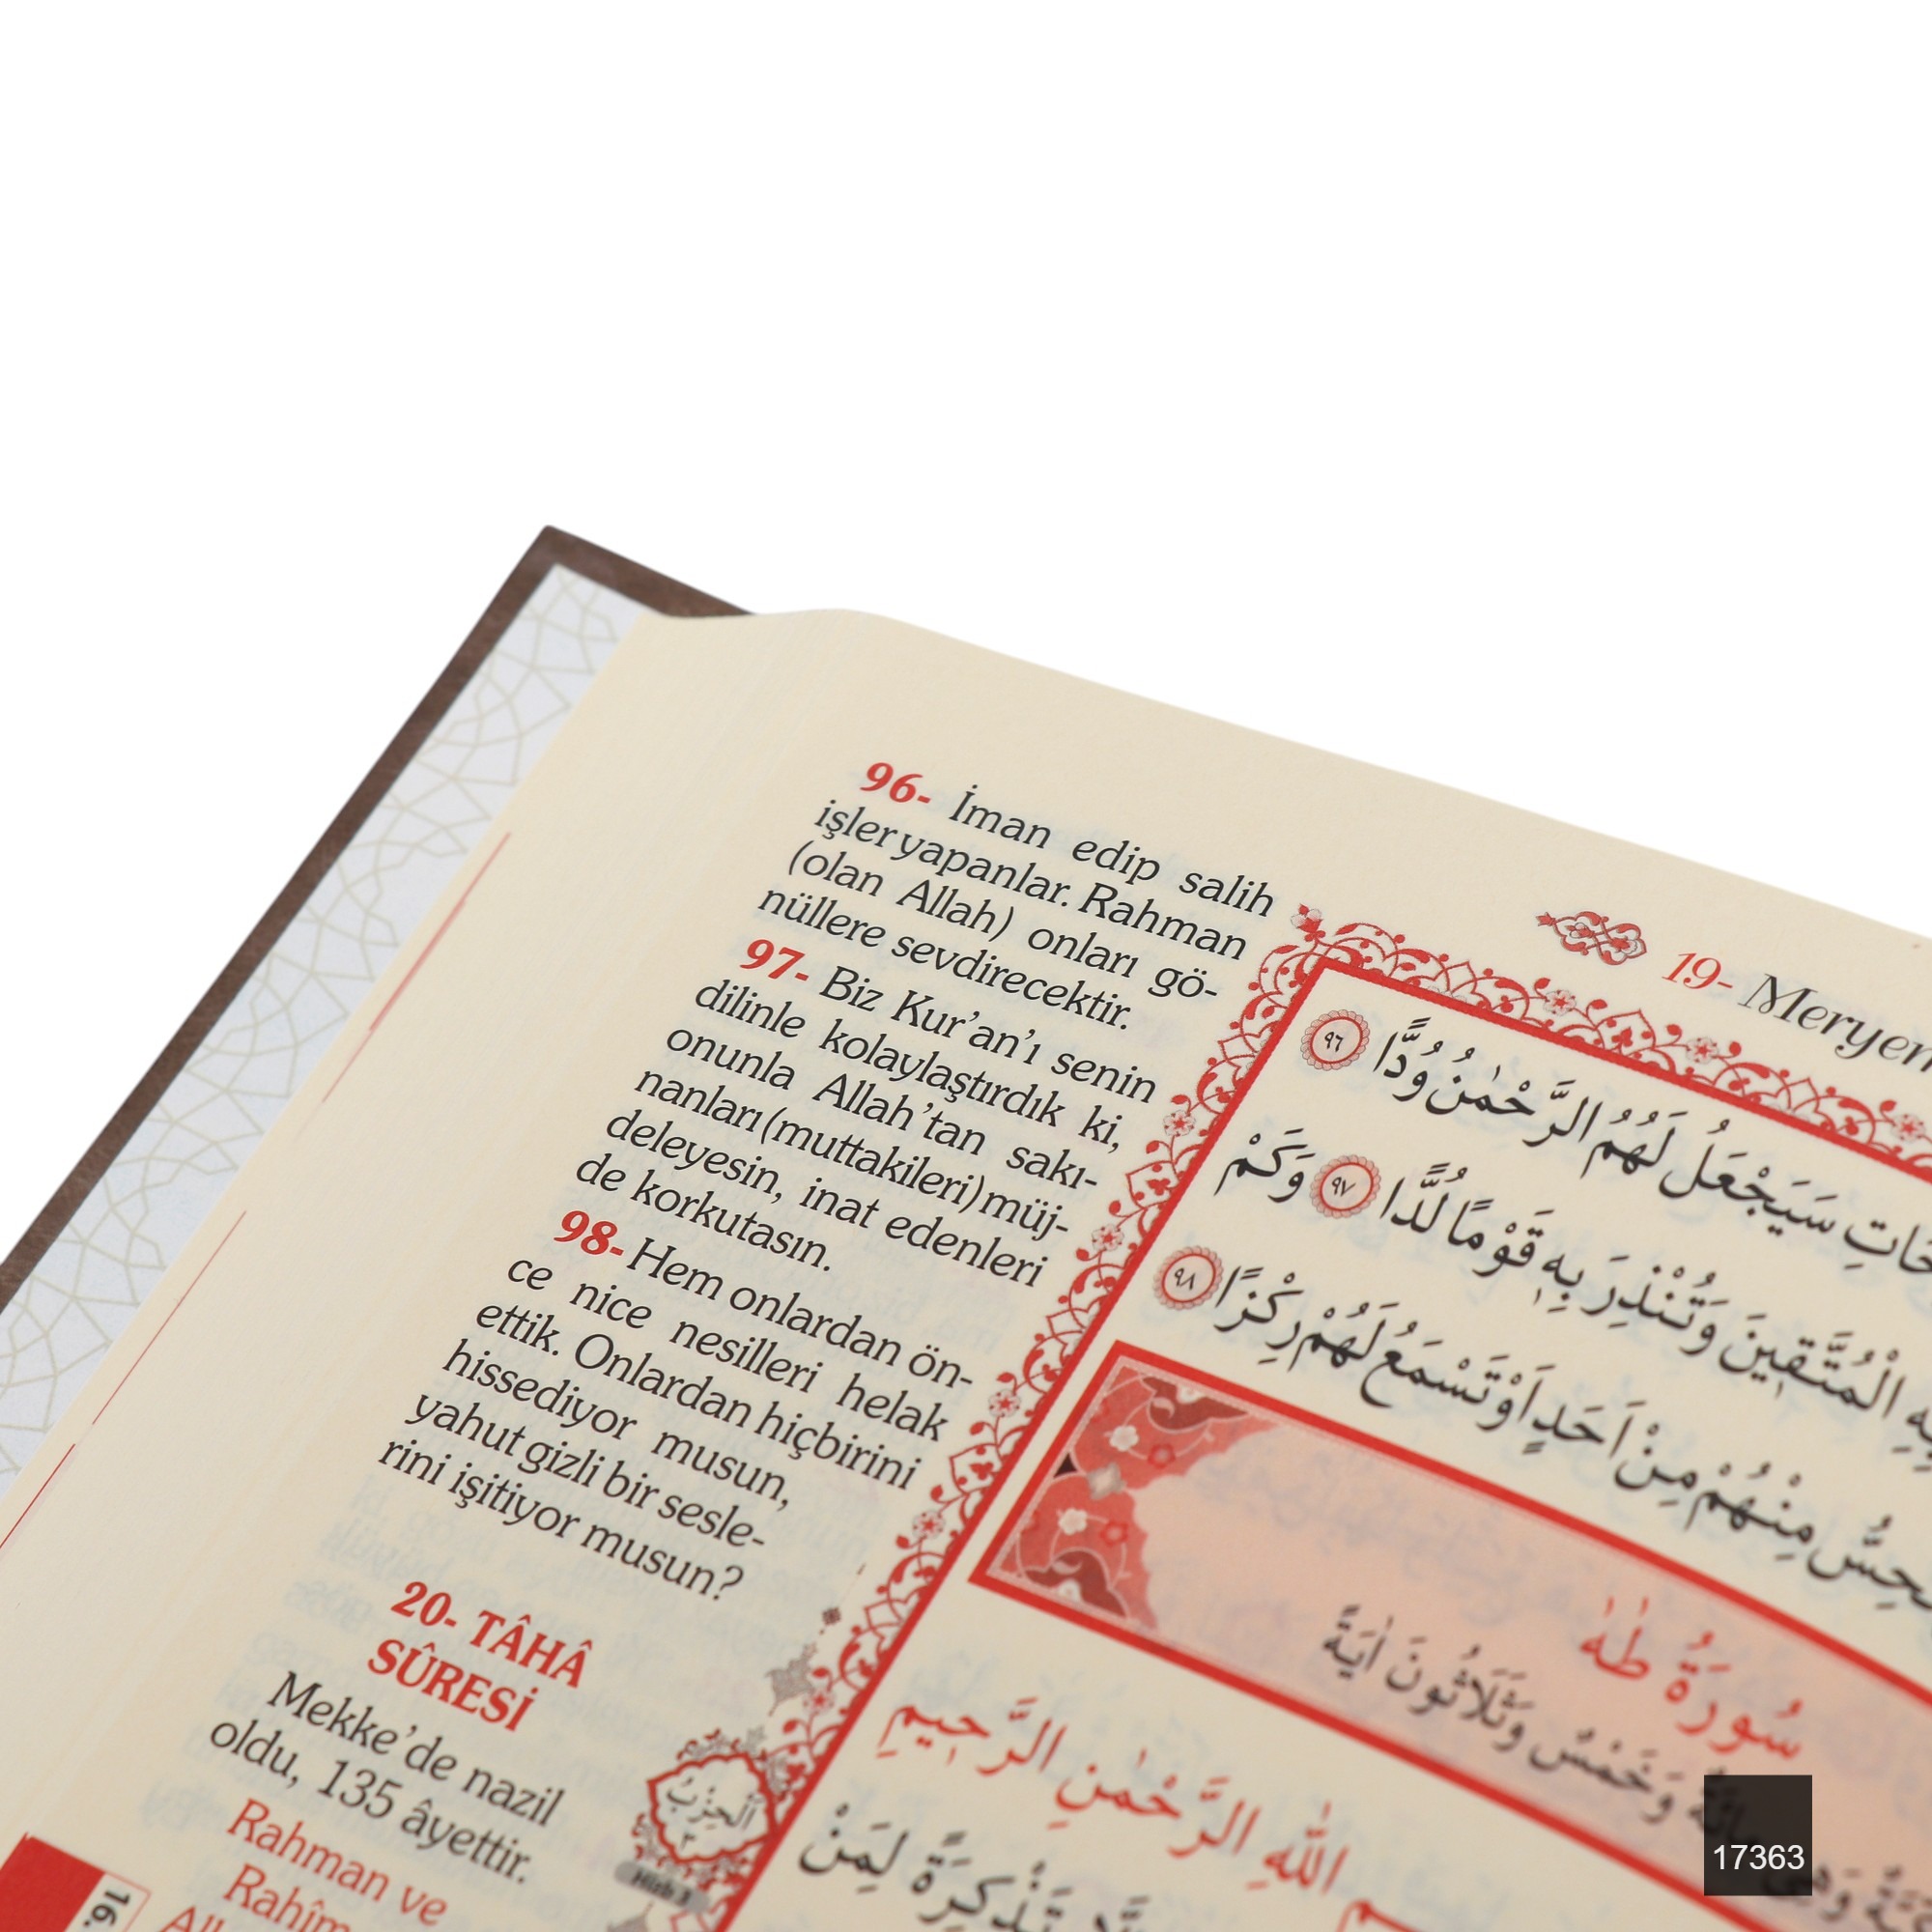 96- İman edip salih
işler yapanlar. Rahman
(olan Allah) onları gö-
nüllere sevdirecektir.
97- Biz Kur'an'ı senin
dilinle kolaylaştırdık ki,
onunla Allah'tan sakı-
nanları (muttakileri) müj-
deleyesin, inat edenleri
de korkutasın.
98- Hem onlardan ön-
ce nice nesilleri helak
ettik. Onlardan hiçbirini
hissediyor musun,
yahut gizli bir sesle-
rini işitiyor musun?
20- TÂHÂ
SÛRESİ
Mekke'de nazil
oldu, 135 âyettir.
Rahman ve
Rahîm
16.
19- Meryem
سَيَجْعَلُ لَهُمُ الرَّحْمٰنُ وُدًّا ٩٦
الْمُتَّق۪ينَ وَتُنْذِرَ بِه۪ قَوْمًا لُدًّا ٩٧ وَكَمْ
مِنْهُمْ مِنْ اَحَدٍ اَوْ تَسْمَعُ لَهُمْ رِكْزًا ٩٨
سُورَةُ طٰهٰ
وَخَمْسٌ وَثَلَاثُونَ اٰيَةً
اللّٰهِ الرَّحْمٰنِ الرَّح۪يمِ
تَذْكِرَةً لِمَنْ
اَلْحِزْبُ
٣
Hizb 3
17363